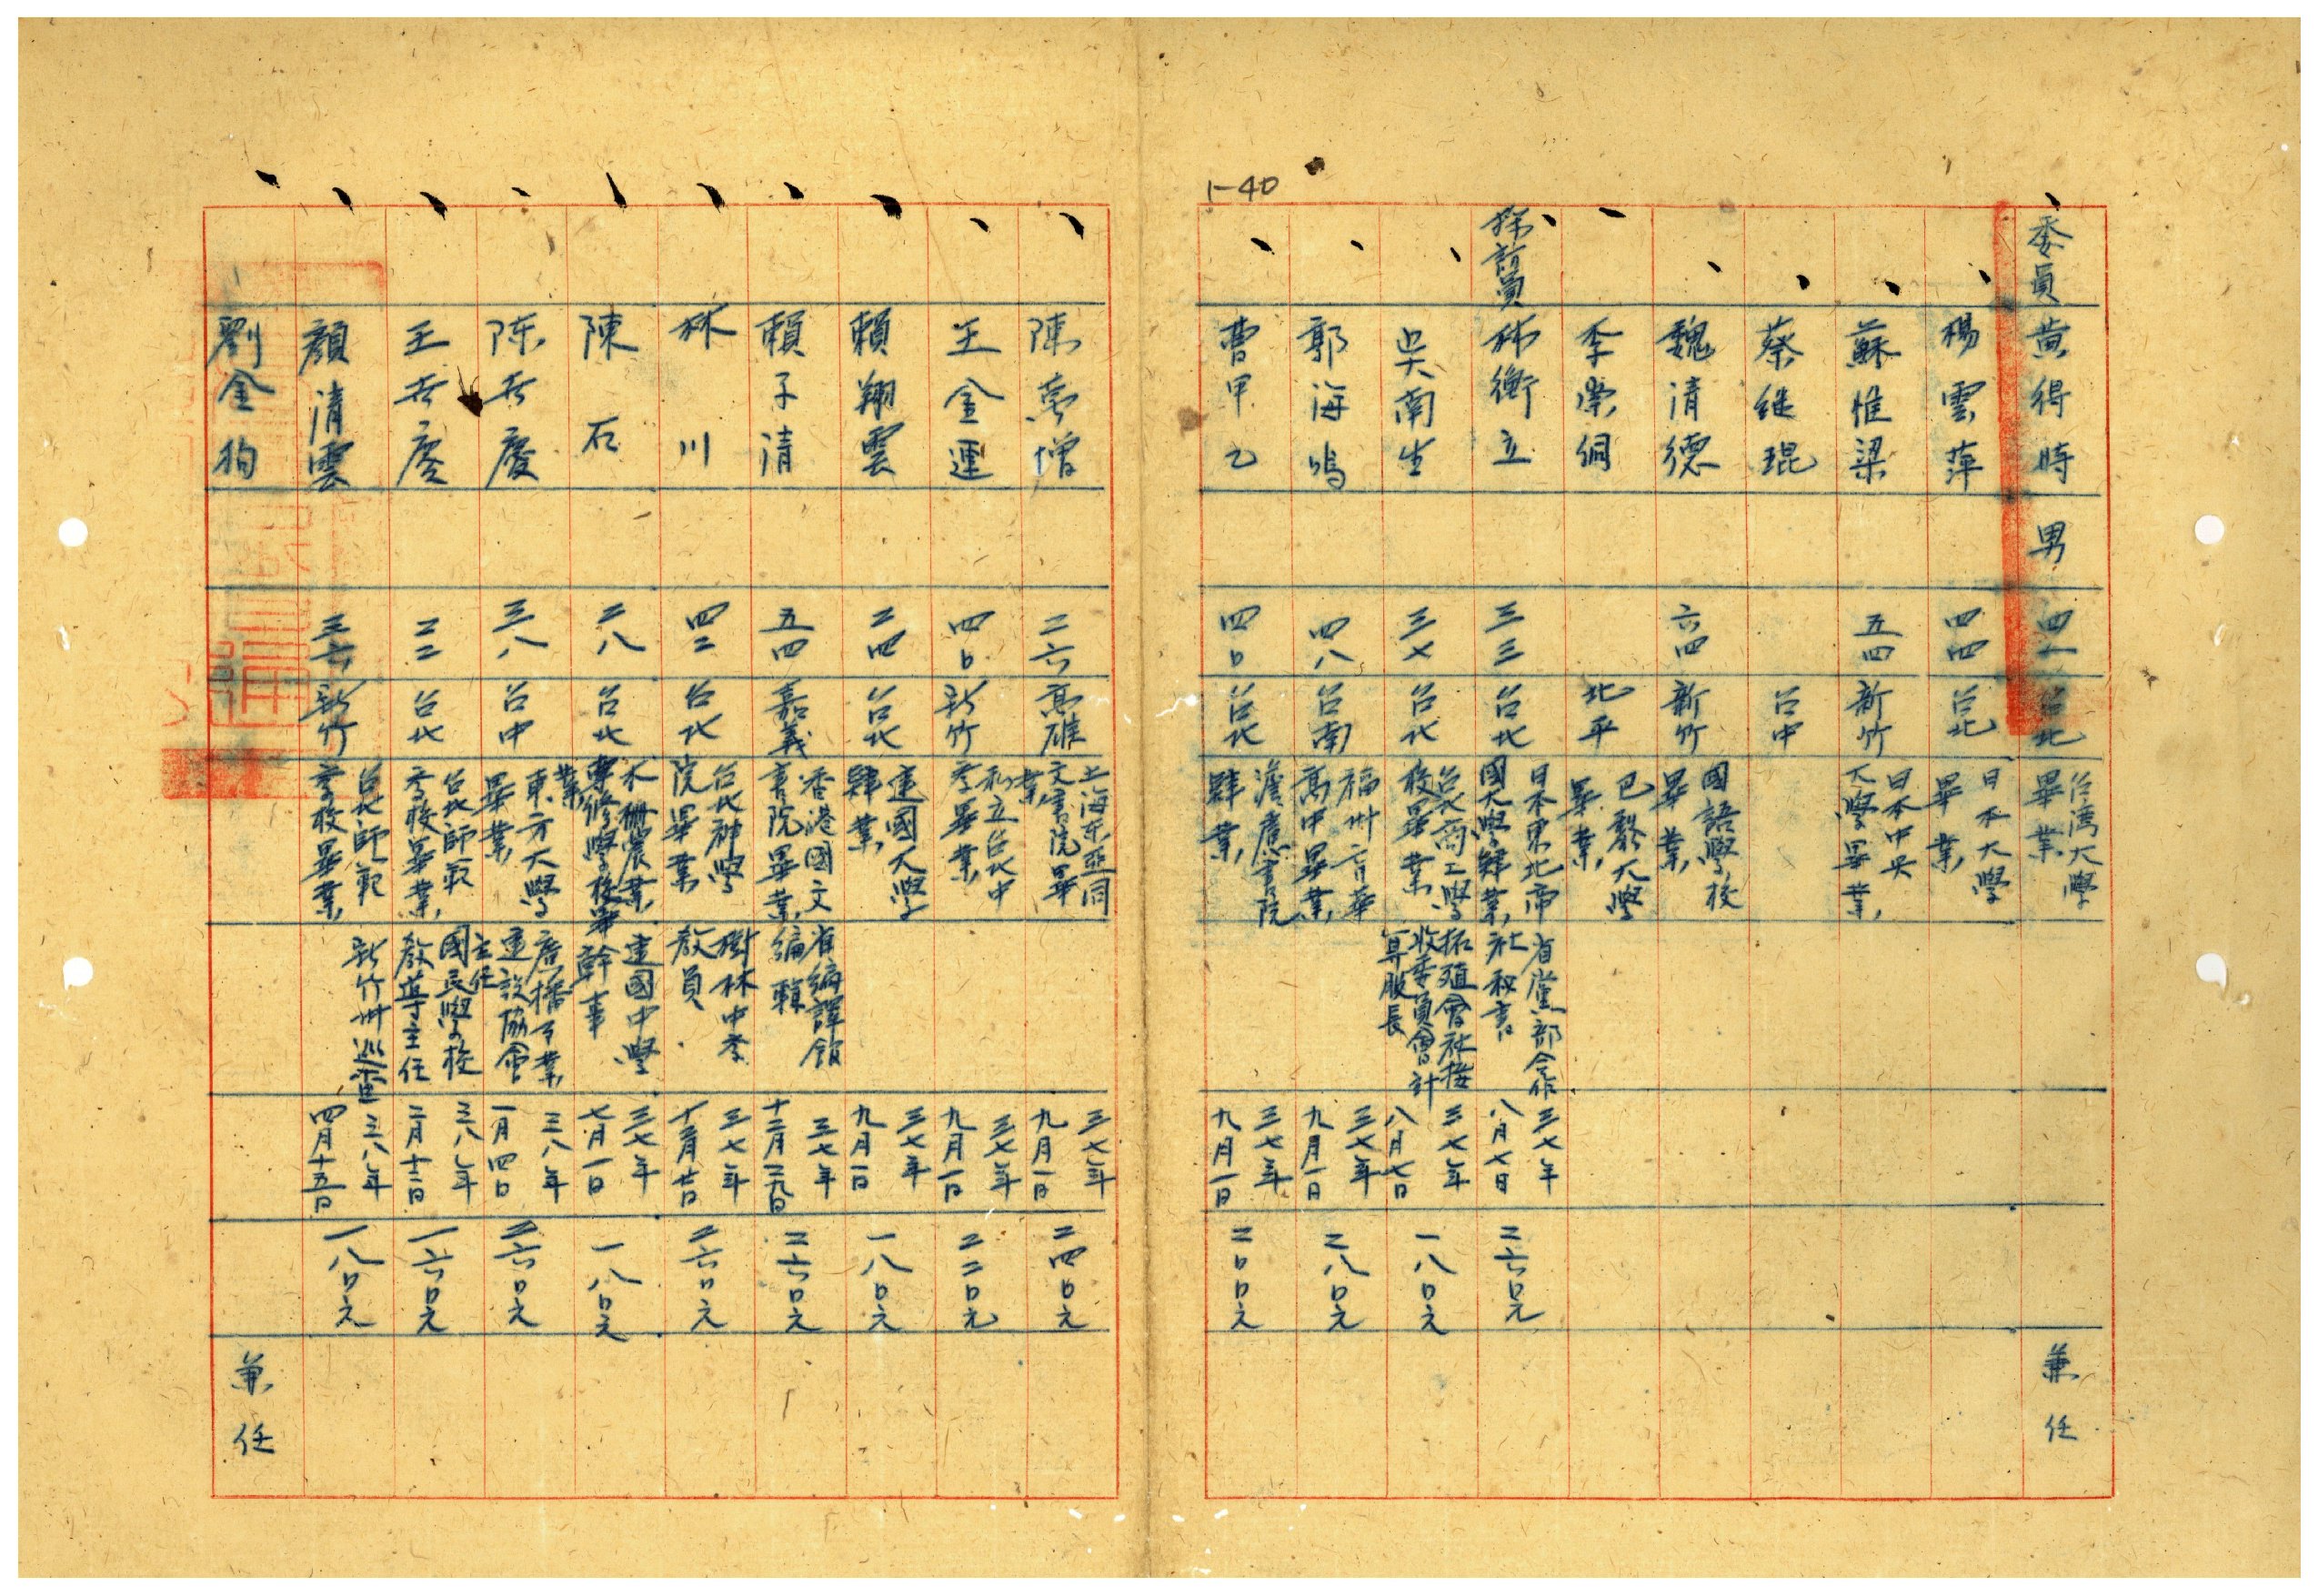 1-40
委員 黃得時 男 四一 台北 台湾大學畢業 兼任
楊雲萍 四四 台北 日本大學畢業
蘇惟梁 五四 新竹 日本中央大學畢業
蔡继琨 台中
魏清德 六四 新竹 國語學校畢業
李榮 北平 巴黎大學畢業
採訪員 林衡立 三三 台北 日本東北帝國大學肄業 省黨部合作社秘書 三七年八月七日 二六口元
吳南生 三七 台北 台北商工學校畢業 拓殖會社接收委員會計算股長 三七年八月七日 一八口元
郭海鳴 四八 台南 福州育華高中畢業 三七年九月一日 二八口元
曹甲乙 四口 台北 滬應書院肄業 三七年九月一日 二口口元
陳 增 二六 高雄 上海东亞同文書院畢業 三七年九月一日 二四口元
王金連 四口 新竹 私立台北中孝畢業 三七年九月一日 二二口元
賴翔雲 二四 台北 建國大學肄業 三七年九月一日 一八口元
賴子清 五四 嘉義 香港國文書院畢業 省編譯館編輯 三七年十二月 日 二六口元
林川 四二 台北 台北神學院畢業 樹林中孝教員 三七年 月 日 二六口元
陳石 二八 台北 木柵農業專修學校畢業 建國中學幹事 三七年七月一日 一八口元
陈世慶 三八 台中 東方大學畢業 廣播事業建設協會主任 三八年一月四日 二六口元
王世慶 二二 台北 台北師範孝校畢業 國民學校教導主任 三八年二月十二日 一六口元
顏清雲 三六 新竹 台北師範孝校畢業 新竹州巡查 三八年四月十五日 一八口元
劉金狗 兼任